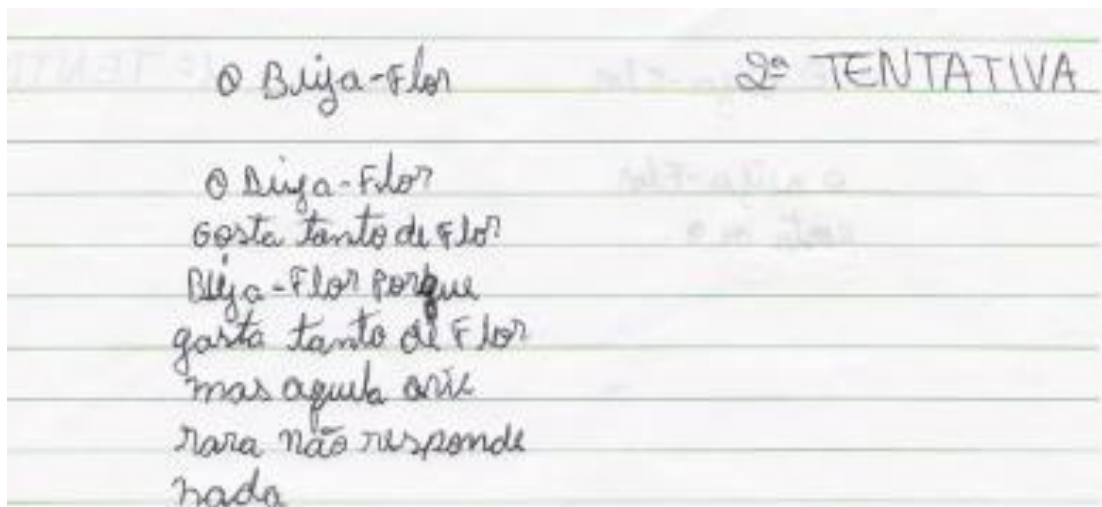 O Beija-Flor 2ª TENTATIVA
O Beija-Flor
Gosta tanto de Flor
Beija-Flor Porque
gosta tanto de Flor
mas aquela ave
rara não responde
nada